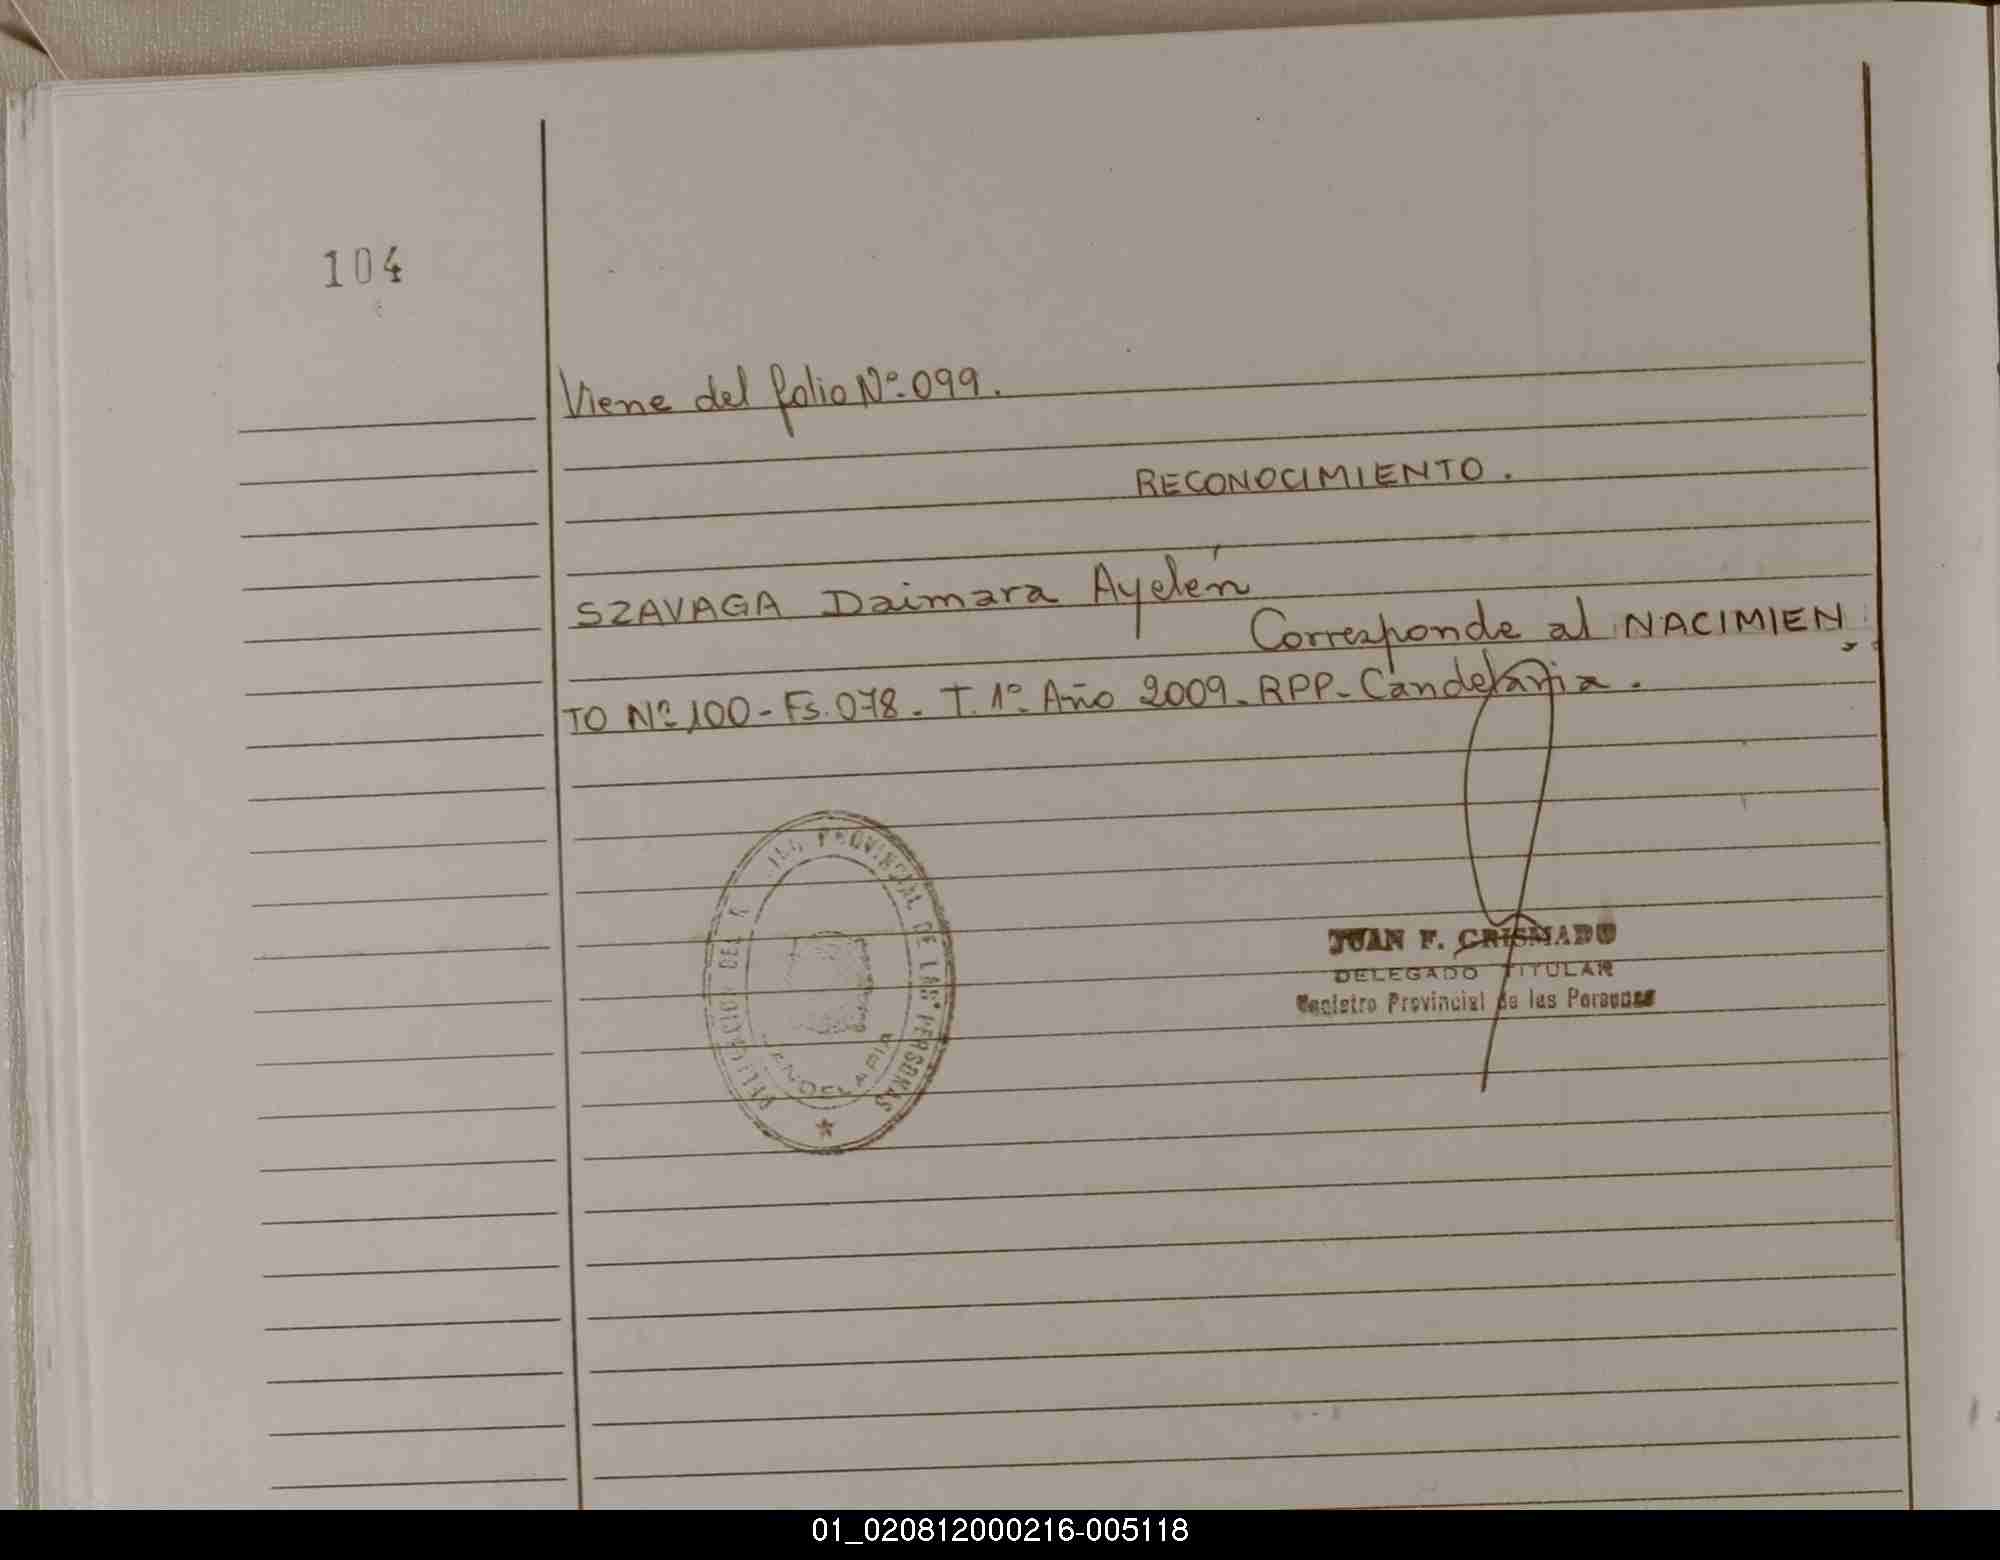 104
Viene del folio Nº.099.
RECONOCIMIENTO.
SZAVAGA Daimara Ayelén
Corresponde al NACIMIEN
TO Nº 100-Fs.078. T.1º. Año 2009. RPP-Candelaria.
PROVINCIAL DE LAS PERSONAS
JUAN F. CRISMADO
DELEGADO TITULAR
Registro Provincial de las Personas
01_020812000216-005118